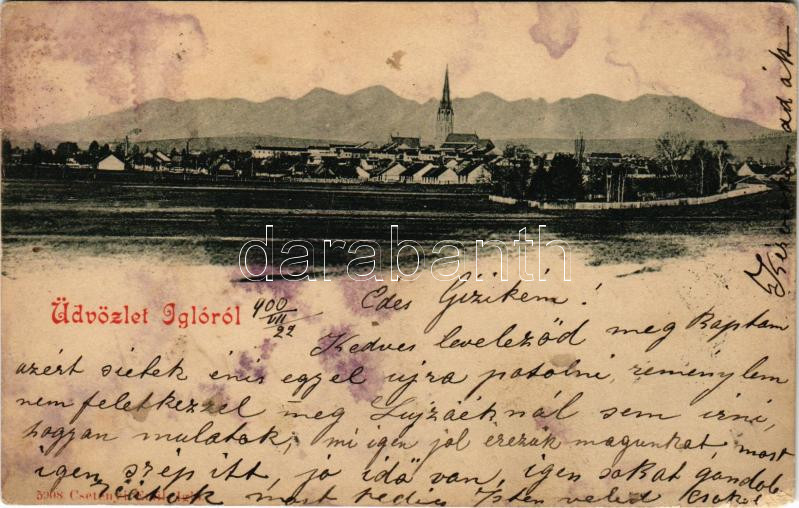 Üdvözlet Iglóról
900
VII
22
Édes Gizikém!
Kedves leveleződ meg kaptam
azért sietek énis egyel ujra potolni, remény lem
nem feletkezzel meg Lujzáéknál sem irni,
hogyan mulatok, mi igen jól érezük magunkat, most
igen szép itt, jo idő van, igen sokat gondol
rátok most pedig Isten veled csokol
5208
darabanth